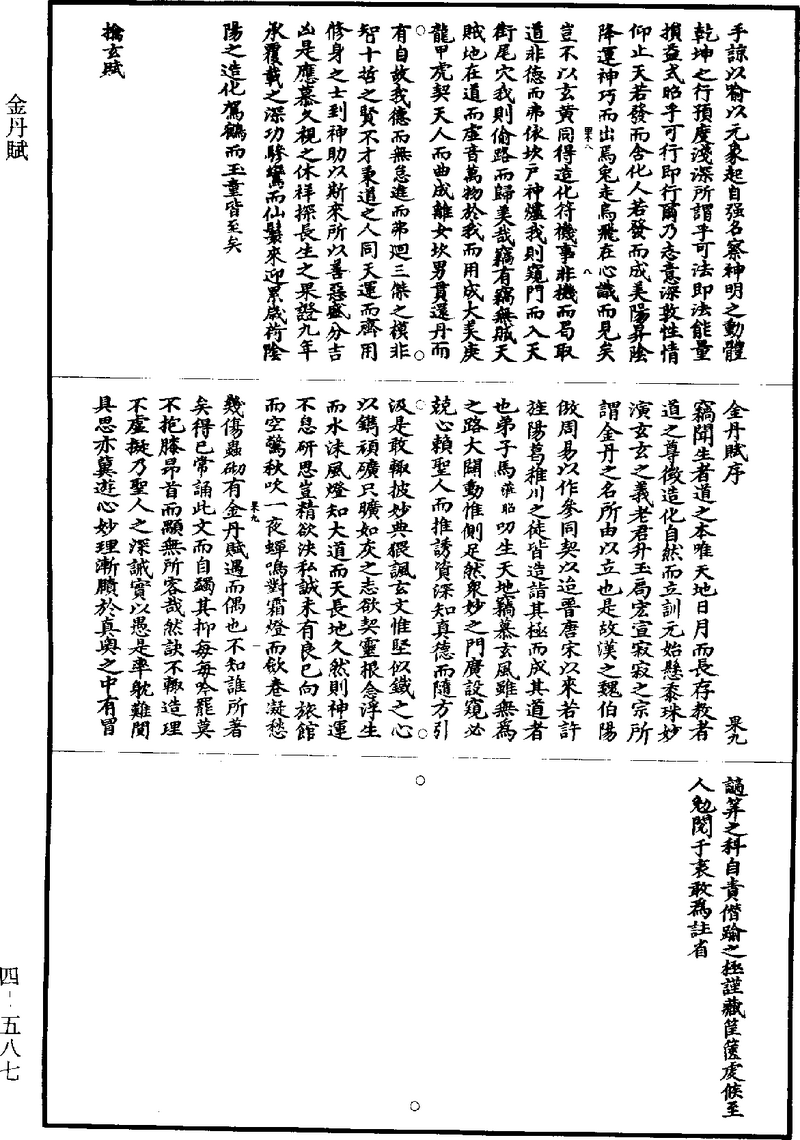 手諒以喻以元象起自强名察神明之動體
乾坤之行預度淺深所謂乎可法即法能量
損益式昭乎可行即行爾乃志意深敦性情
仰止天若發而含化人若發而成美陽昇陰
降運神巧而出焉兔走烏飛在心識而見矣
豈不以玄黃同得造化符機事非機而局取
果八
八
道非德而弗依坎戶神爐我則窺門而入天
街尾穴我則偷路而歸美哉竊有竊無賊天
賊地在道而虛音萬物於我而用成大美庚
龍甲虎契天人而曲成離女坎男貫還丹而
有自故我德而無怠進而弗迴三傑之模非
智十哲之賢不才秉道之人同天運而齊用
修身之士到神助以斯來所以善惡盛分吉
凶是應慕久視之休祥探長生之果證九年
承覆載之深功驂鸞而仙鬟來迎累歲荷陰
陽之造化駕鶴而玉童皆至矣
擒玄賦
金丹賦序
果九
竊聞生者道之本唯天地日月而長存教者
道之尊徵造化自然而立訓元始懸黍珠妙
演玄玄之義老君升玉局宏宣寂寂之宗所
謂金丹之名所由以立也是故漢之魏伯陽
倣周易以作參同契以迨晋唐宋以來若許
旌陽葛稚川之徒皆造詣其極而成其道者
也弟子馬蒞昭叨生天地竊慕玄風雖無為
之路大闢動惟側足然衆妙之門廣設窺必
兢心賴聖人而推誘質深知真德而隨方引
汲是敢輙披妙典猥諷玄文惟堅似鐵之心
以鐫頑礦只曠如灰之志欲契靈根念浮生
而水沫風燈知大道而天長地久然則神運
不息研思豈精欲決私誠未有良已向旅館
而空驚秋吹一夜蟬鳴對霜燈而欲卷凝愁
果九
一
幾傷蟲砌有金丹賦遇而偶也不知誰所著
矣得已常誦此文而自蠲其抑每每吟罷莫
不抱膝昂首而顒無所咨哉然訣不輙造理
不虛擬乃聖人之深誡實以愚是率躭難閱
具思亦冀遊心妙理漸臍於真奧之中有冒
謫筭之科自責僭踰之極謹藏筐篋虔候至
人勉閱于衷敢為註省
金丹賦
四－五八七